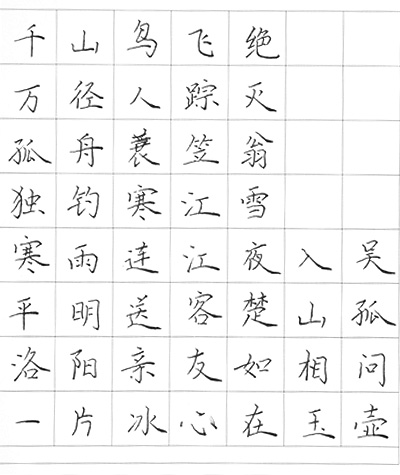 千山鸟飞绝
万径人踪灭
孤舟蓑笠翁
独钓寒江雪
寒雨连江夜入吴
平明送客楚山孤
洛阳亲友如相问
一片冰心在玉壶